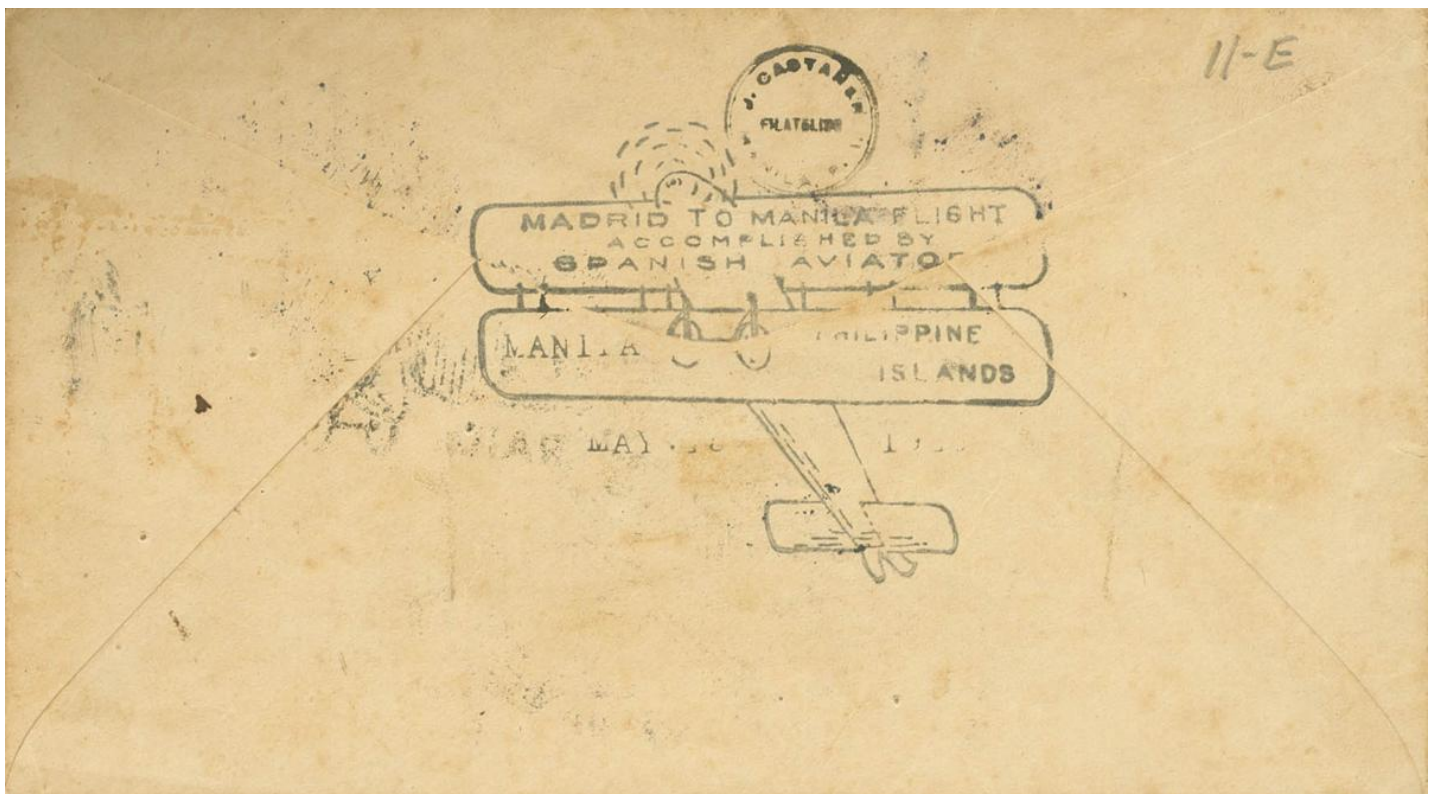 11-E
J. CASTAÑER
FILATELICO
MADRID TO MANILA FLIGHT
ACCOMPLISHED BY
SPANISH AVIATOR
MANILA PHILIPPINE
ISLANDS
MAY